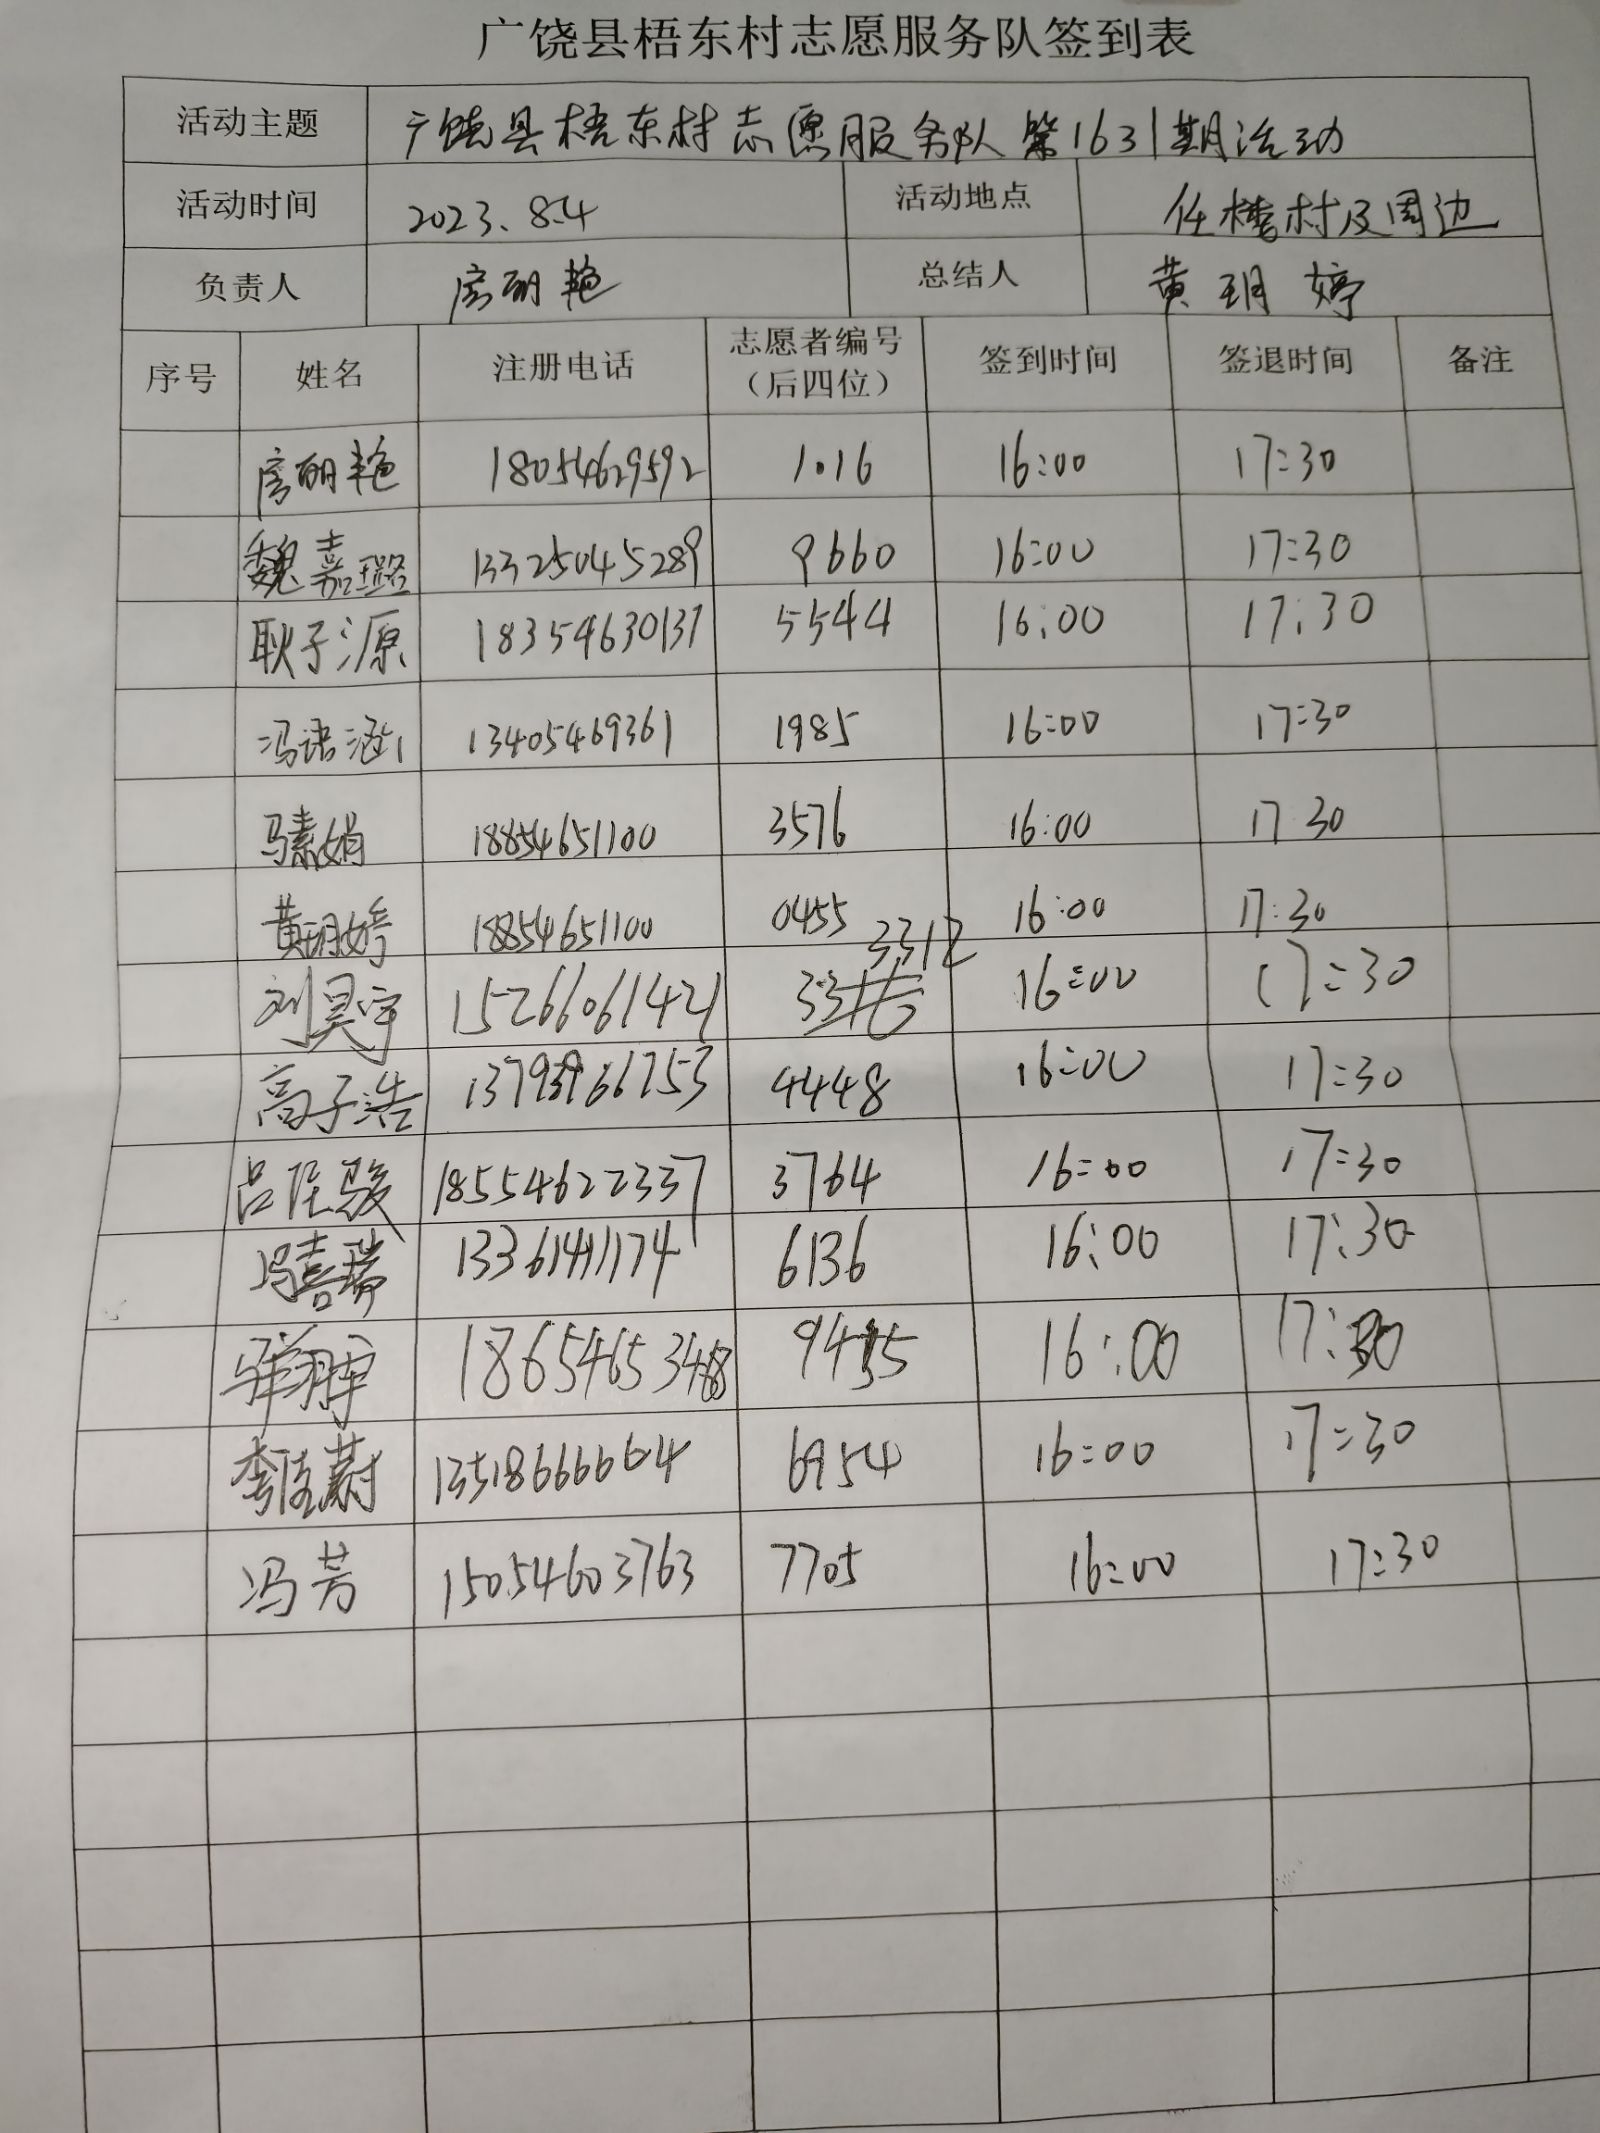 广饶县梧东村志愿服务队签到表
活动主题 广饶县梧东村志愿服务队第1631期活动
活动时间 2023.8.4 活动地点 任楼村及周边
负责人 房明艳 总结人 黄玥婷
序号 姓名 注册电话 志愿者编号（后四位） 签到时间 签退时间 备注
房明艳 18054629592 1016 16:00 17:30
魏嘉璐 13325045289 9660 16:00 17:30
耿子源 18354630137 5544 16:00 17:30
冯诺涵 13405469361 1985 16:00 17:30
冯素娟 18854651100 3576 16:00 17:30
黄玥婷 18854651100 0455 16:00 17:30
刘昊宇 15266061421 3312 16:00 17:30
高子浩 4448 16:00 17:30
吕任骏 18554622337 3764 16:00 17:30
冯喜瑞 13361411174 6136 16:00 17:30
16:00 17:30
李佳蔚 13518666664 6954 16:00 17:30
冯芳 15054603763 7705 16:00 17:30